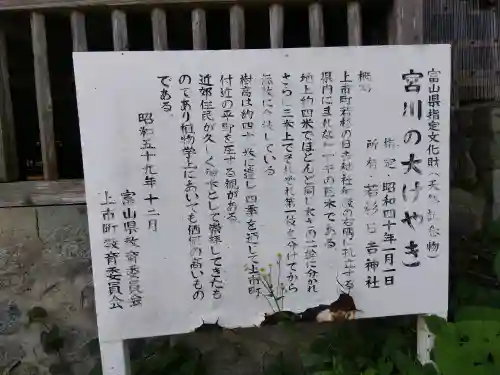 富山県指定文化財(天然記念物)
宮川の大けやき
指定 昭和四十年一月一日
所有 若杉 日吉神社
概況
上市町若杉の日吉神社
県内にまれな
地上約四米でほとんど同じ太さの二幹に分かれ
さらに三米上でそれぞれ第二枝を分けてから
いる
樹高は約四十米に達し四季を通じて上市町
付近の平野を圧する観がある
近郷住民が久しく
として崇拝してきたも
のであり植物学上においても価値の高いもの
である。
昭和五十九年十二月
富山県教育委員会
上市町教育委員会